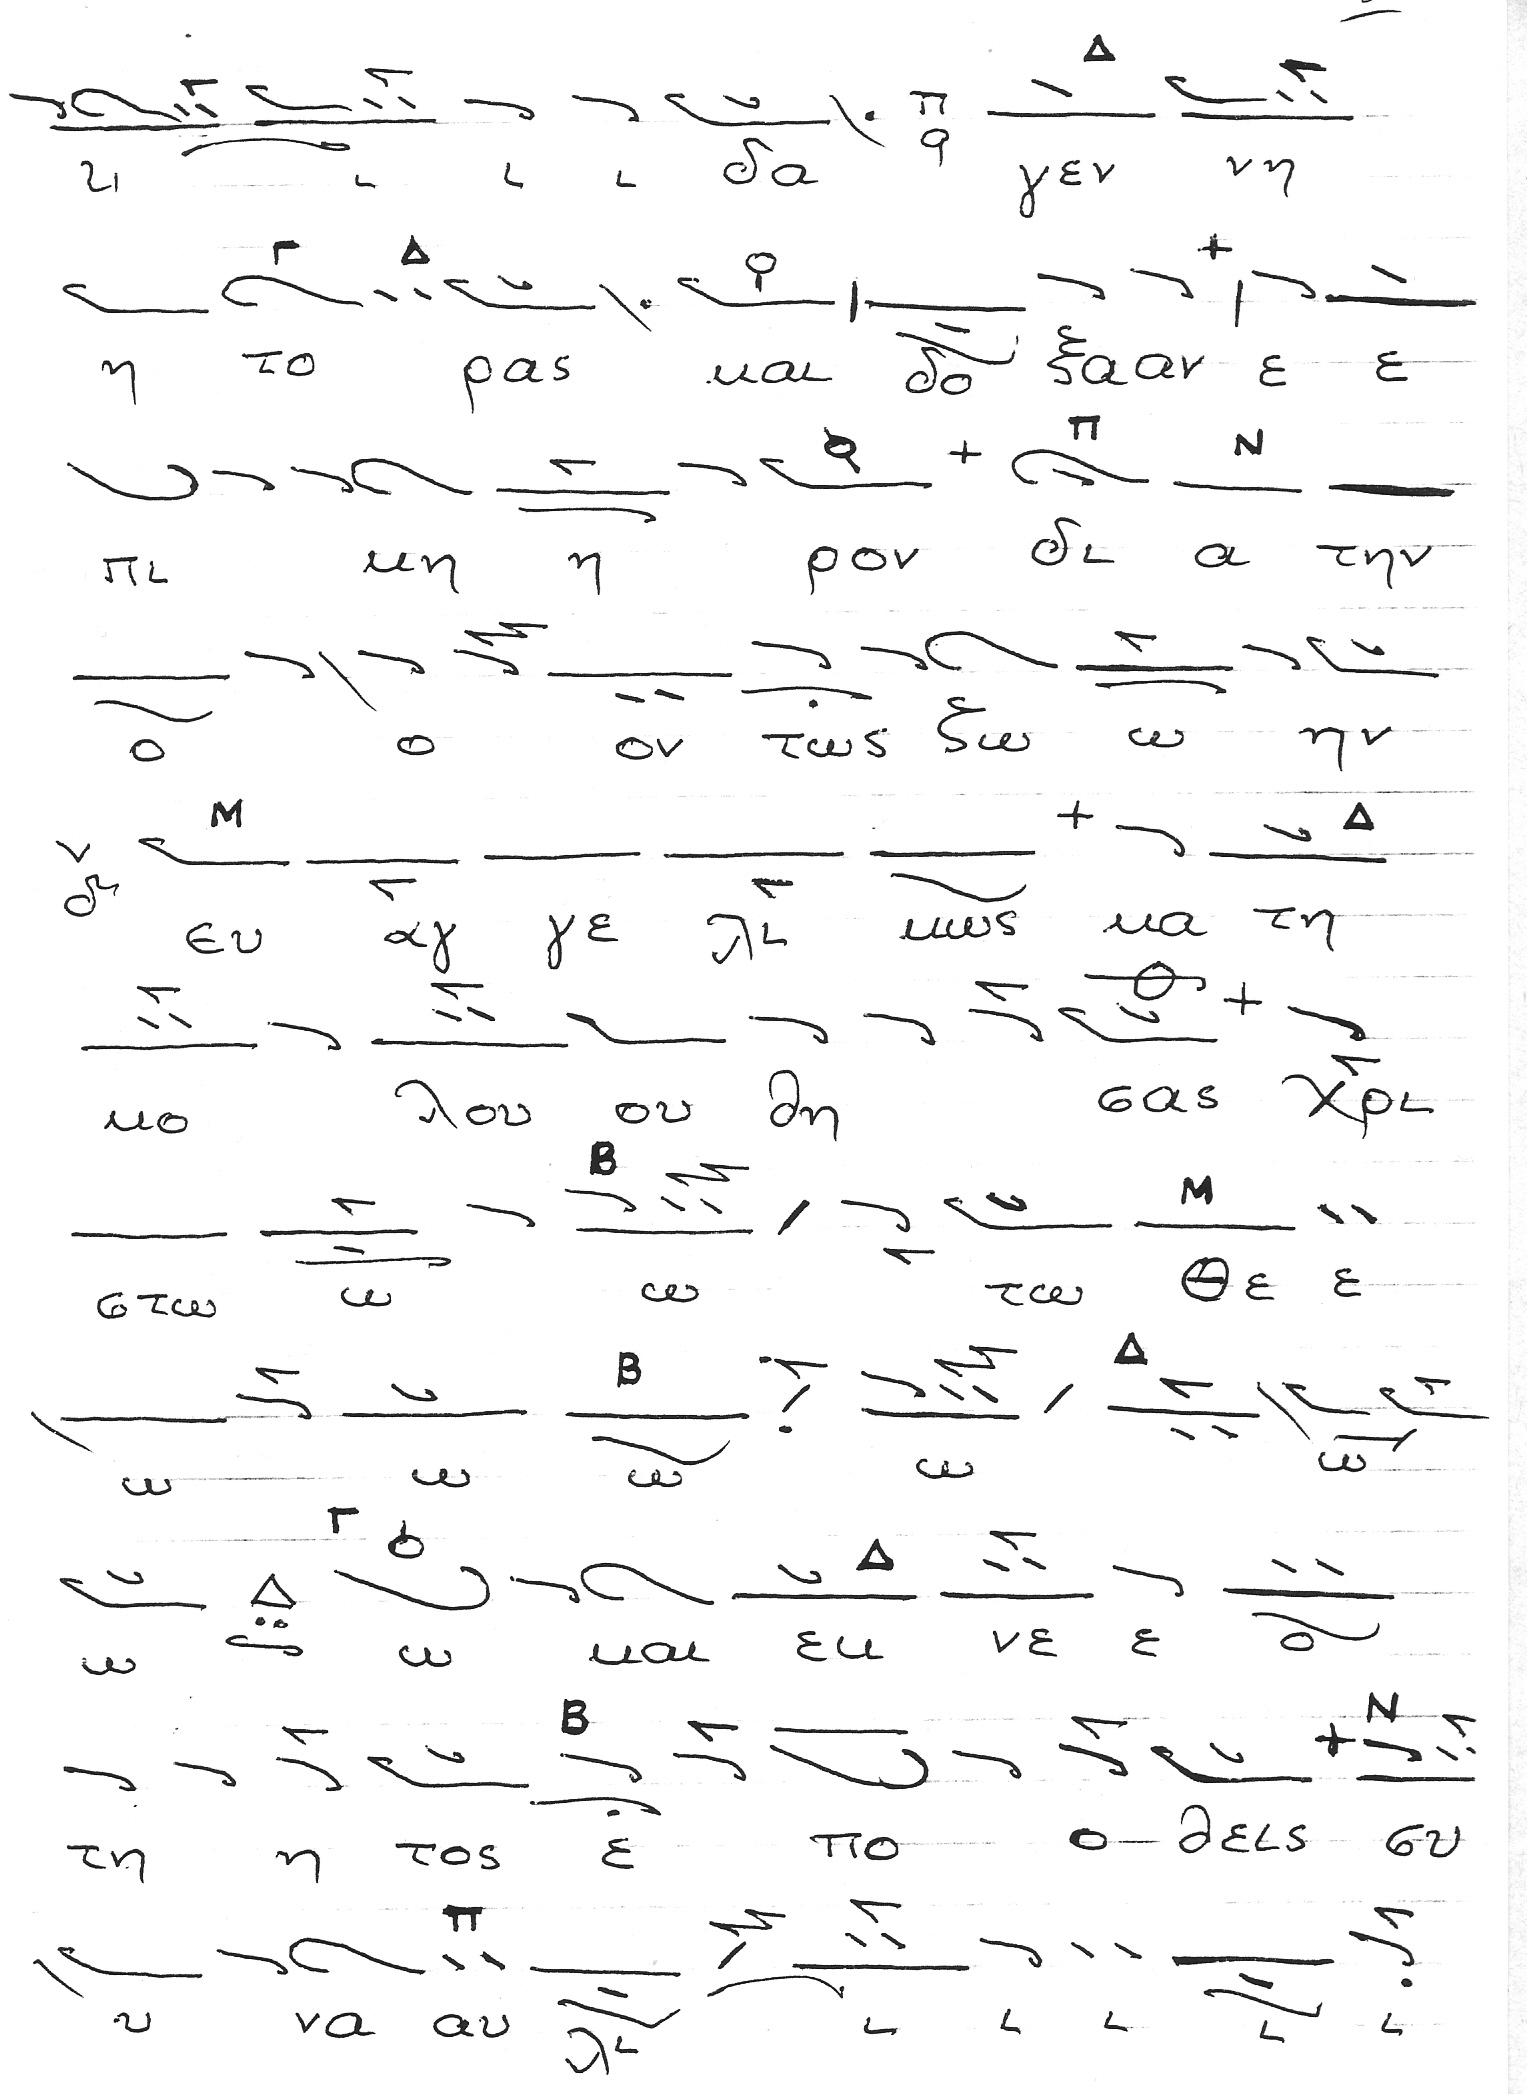 ι ι ι δα γεν νη
η το ρας και δο ξα αν ε ε
πι κη η ρον δι α την
ο ο ον τως ζω ω ην
ευ αγ γε λι κως κα τη
κο λου ου θη σας Χρι
στω ω ω τω Θε ε
ω ω ω ω ω
ω ω και εκ νε ε ο
τη η τος ε πο ο - θεις συ
υ να αυ λι ι ι ι ι ι